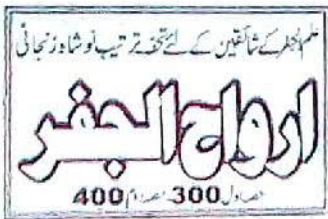 علم الجفر کے شائقین کے لئے تحفہ ترتیب نوشاہ زنجانی
ارواح الجفر
حصہ اول 300 حصہ دوم 400